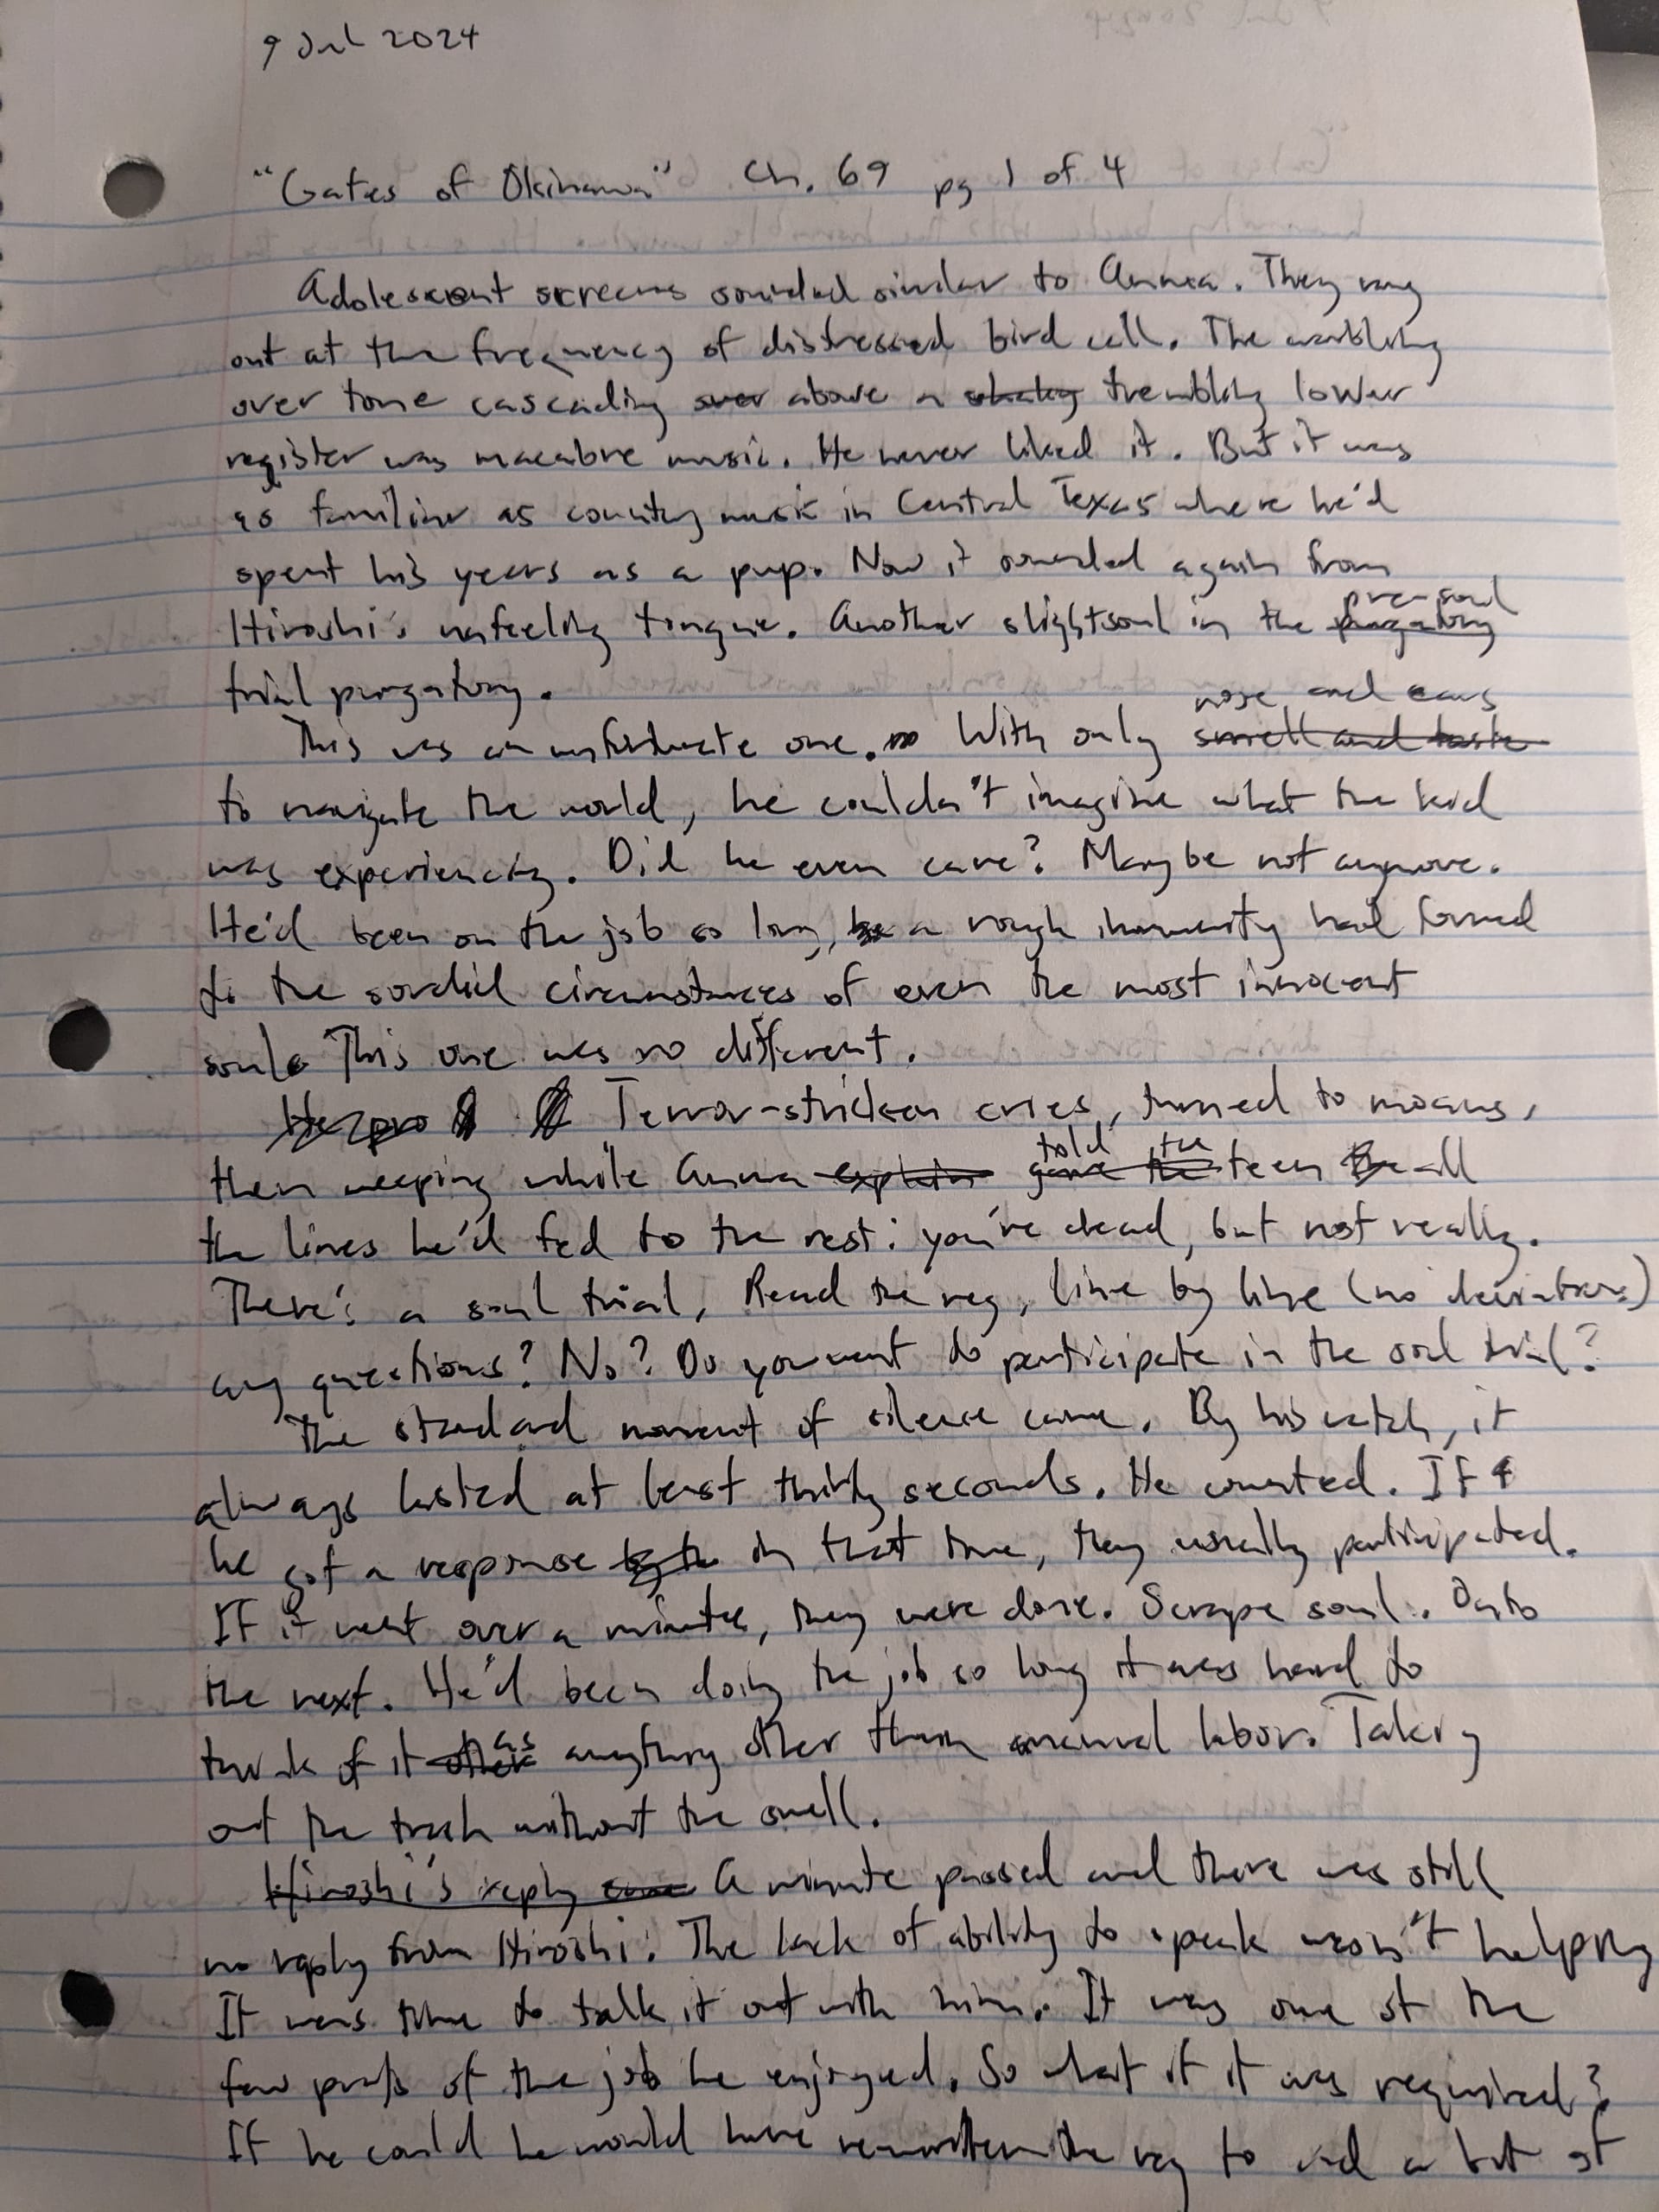 9 Jul 2024
"Gates of Okinawa" Ch. 69 pg 1 of 4
Adolescent screams sounded similar to Anma. They rang
out at the frequency of distressed bird call. The warbling
over tone cascading over above a shaky trembling lower
register was macabre music. He never liked it. But it was
as familiar as country music in Central Texas where he'd
spent his years as a pup. Now it sounded again from
pre-soul
Hiroshi's unfeeling tongue. Another slightsoul in the purgatory
trial purgatory.
nose and ears
This was an unfortunate one. With only smell and taste
to navigate the world, he couldn't imagine what the kid
was experiencing. Did he even care? Maybe not anymore.
He'd been on the job so long, he a rough immunity had formed
to the sordid circumstances of even the most innocent
souls This one was no different.
Terror-stricken cries, turned to moans,
told the
then weeping while Anma explain gave the teen all
the lines he'd fed to the rest: you've dead, but not really.
There's a soul trial, Read the reg, line by line (no deviations)
any questions? No? Do you want to participate in the soul trial?
The standard moment of silence came. By his watch, it
always lasted at least thirty seconds. He counted. If
he got a response by the in that time, they usually participated.
If it went over a minute, they were done. Scrape soul. Onto
the next. He'd been doing the job so long it was hard to
as
think of it other anything other than manual labor. Taking
out the trash without the smell.
Hiroshi's reply came A minute passed and there was still
no reply from Hiroshi. The lack of ability to speak wasn't helping
It was time to talk it out with him. It was one of the
few parts of the job he enjoyed. So what if it was required?
If he could he would have rewritten the reg to add a bit of